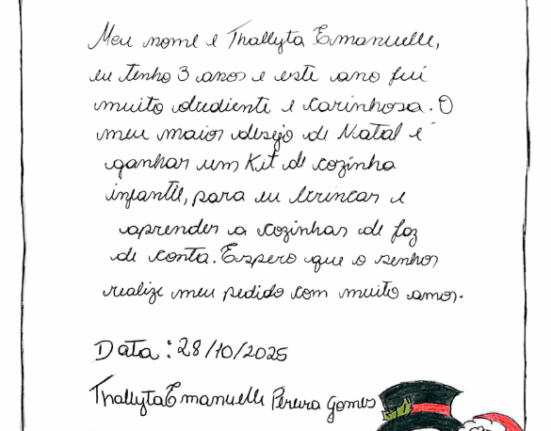 Meu nome é Thallyta Emanuelle,
eu tenho 3 anos e este ano fui
muito obediente e carinhosa. O
meu maior desejo de Natal é
ganhar um Kit de cozinha
infantil, para eu brincar e
aprender a cozinhar de faz
de conta. Espero que o senhor
realize meu pedido com muito amor.
Data: 28/10/2025
Thallyta Emanuelle Pereira Gomes